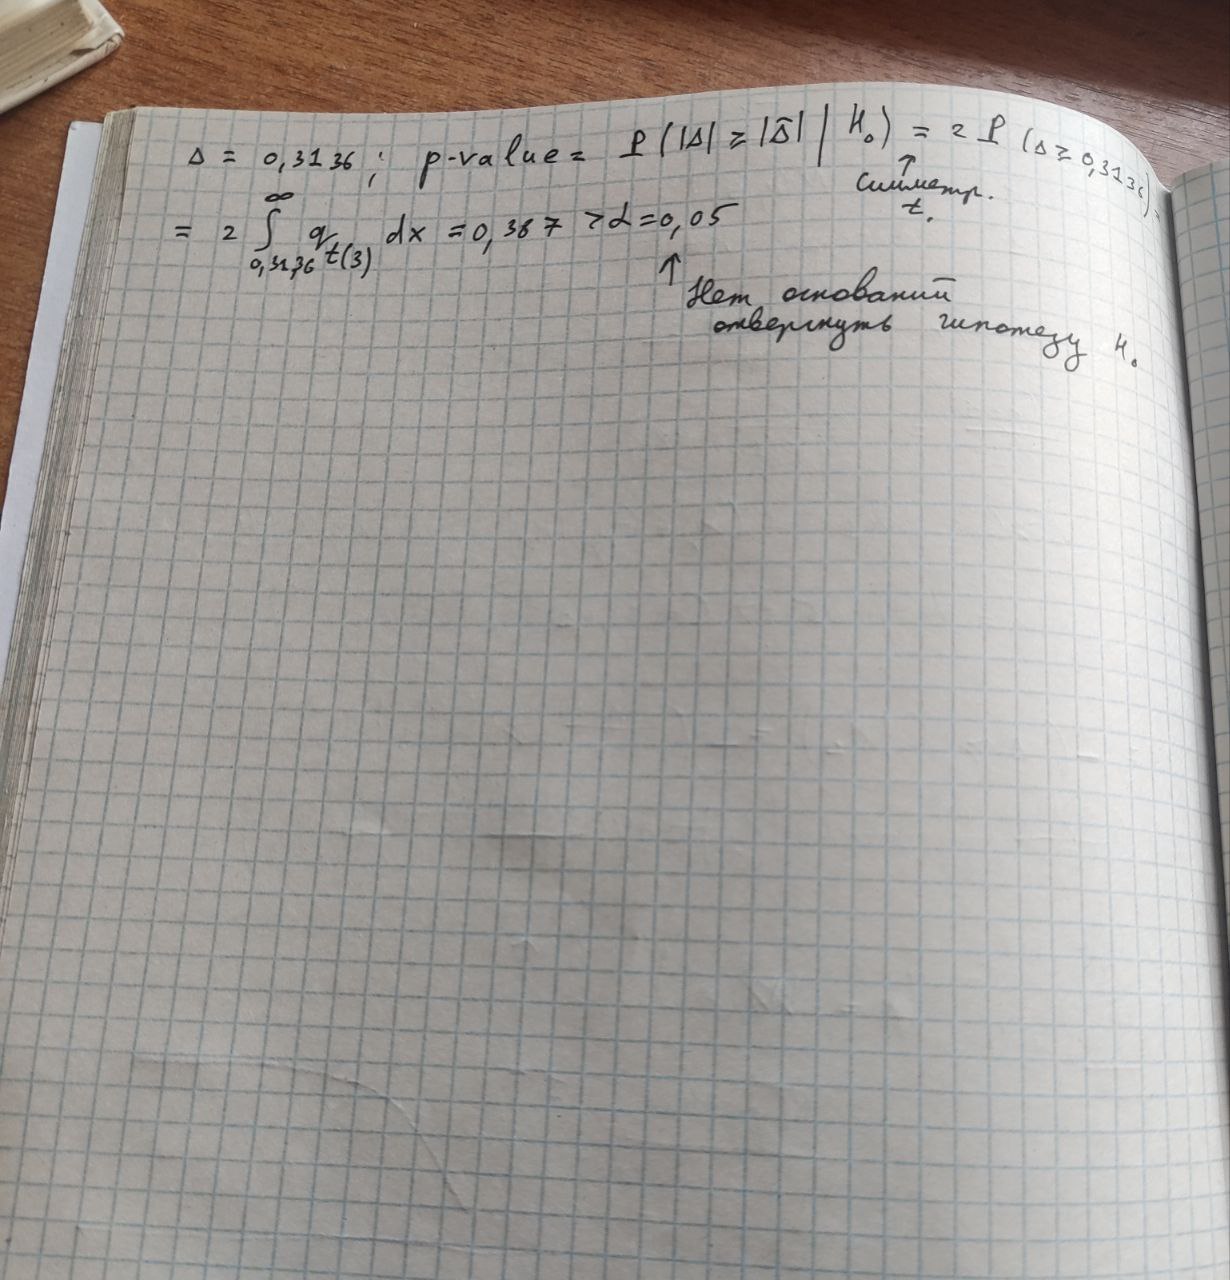 Δ = 0,3136; p-value = P(|Δ| ≥ |Δ̃| | H₀) = 2 P(Δ ≥ 0,3136) =
↑
симметр.
t.
= 2 ∫_{0,3136}^{∞} q_{t(3)} dx = 0,387 > α = 0,05
↑
Нет оснований
отвергнуть гипотезу H₀